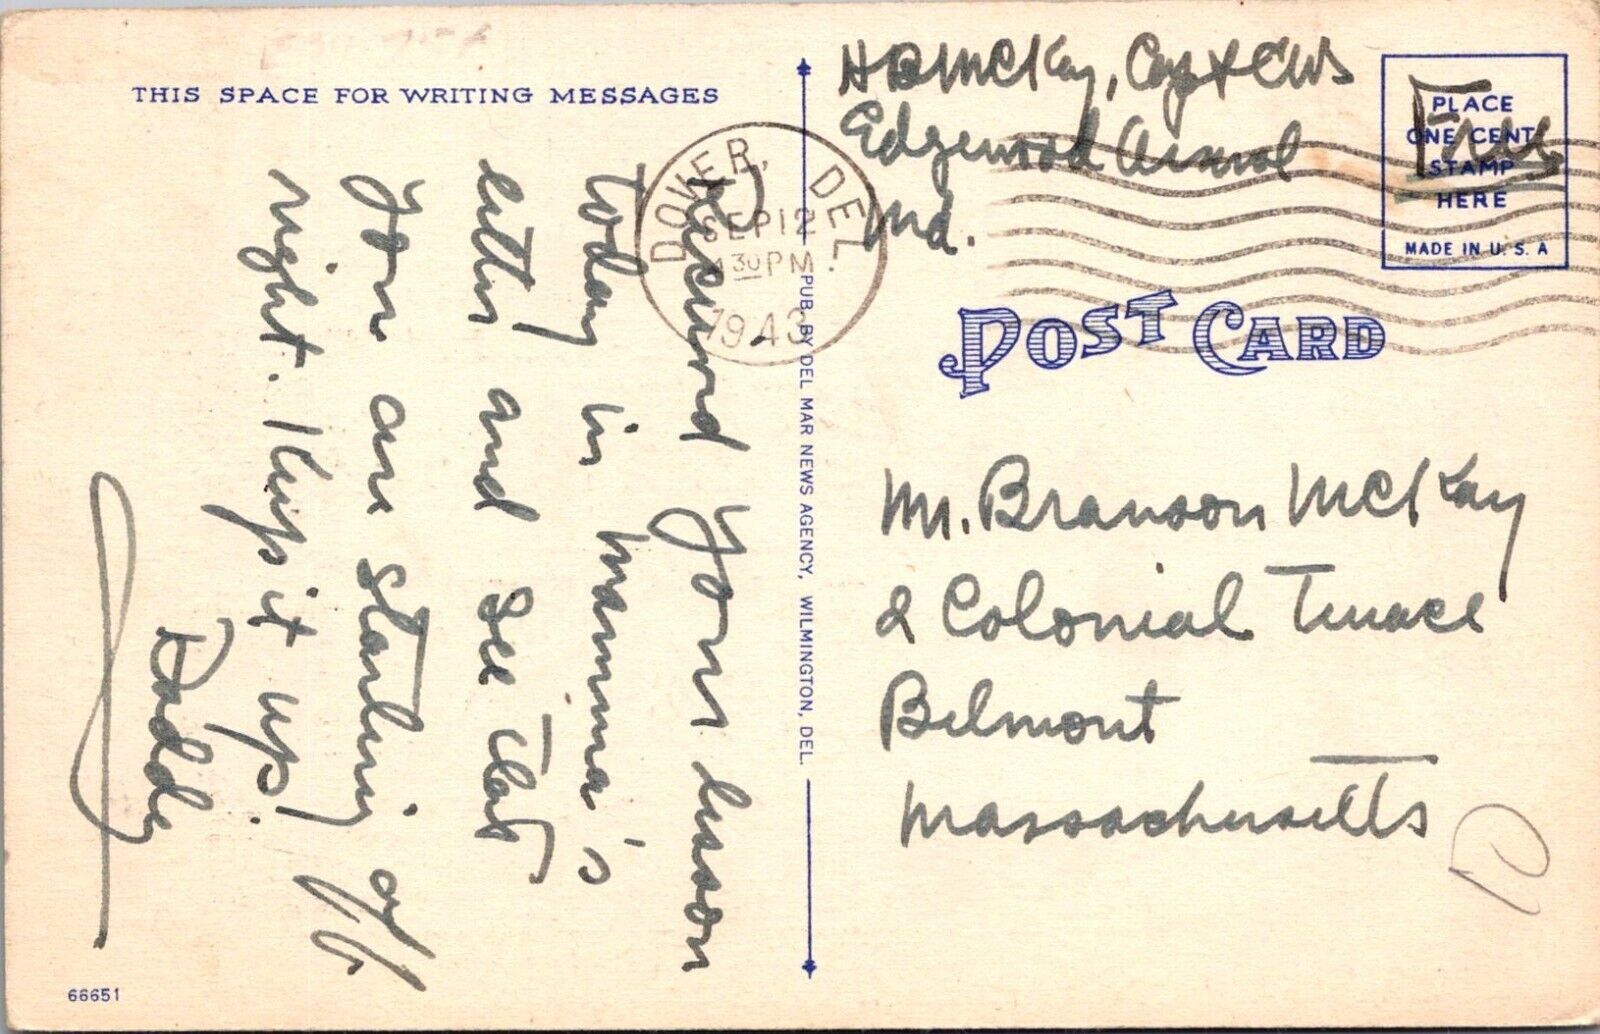 THIS SPACE FOR WRITING MESSAGES
Received your lesson
today in mamma's
letter and see that
you are starting off
right. Keep it up!
Daddy
66651
PUB. BY DEL MAR NEWS AGENCY, WILMINGTON, DEL.
DOVER, DEL.
SEP 12
30 PM
1943
H B McKay, Capt CWS
Edgewood Arsenal
Md.
Free
PLACE
ONE CENT
STAMP
HERE
MADE IN U. S. A
POST CARD
Mr. Branson McKay
2 Colonial Terrace
Belmont
Massachusetts